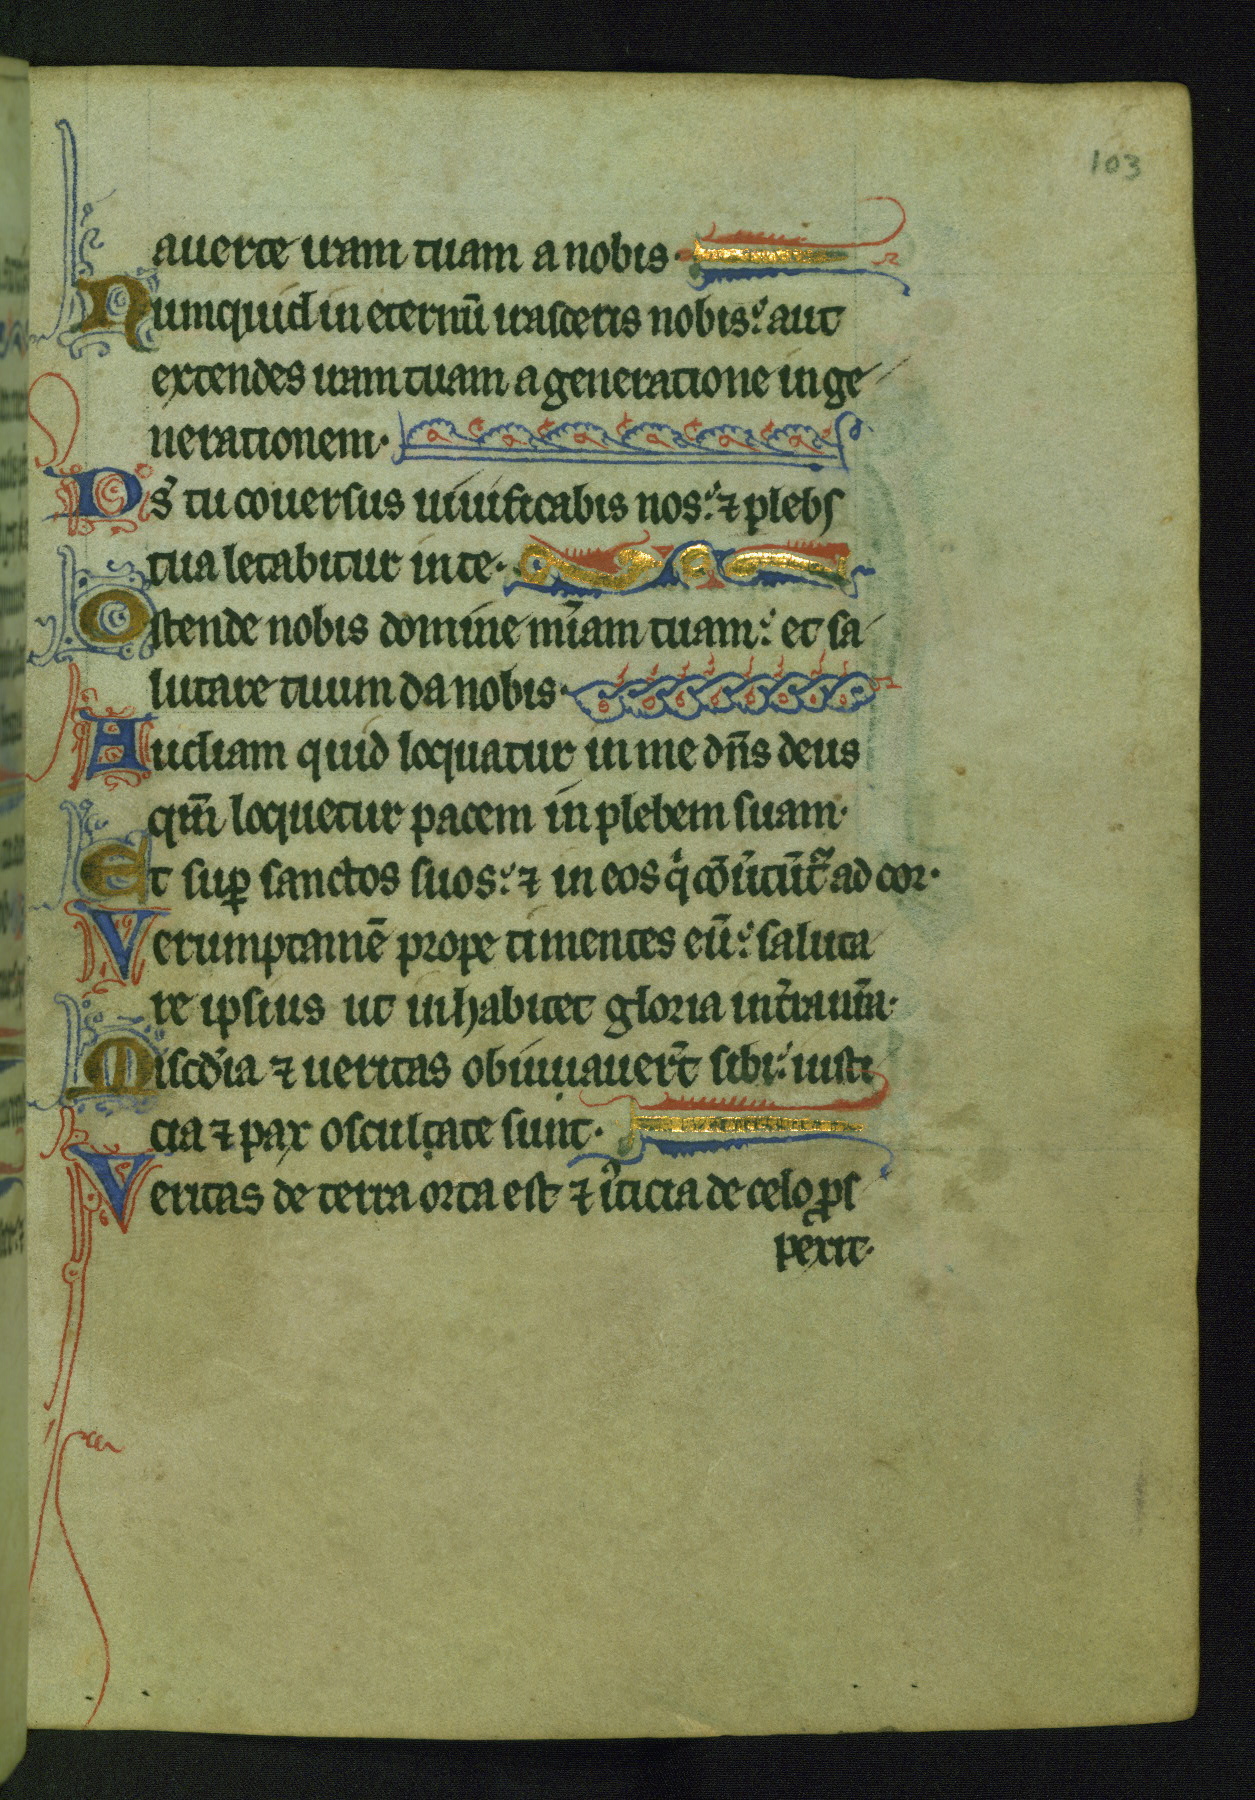 103
auerte iram tuam a nobis·
Numquid in eternū irasceris nobis: aut
extendes iram tuam a generatione in ge
nerationem·
Ds̄ tu couersus uiuificabis nos: ⁊ plebs
tua letabitur in te·
Ostende nobis domine mīam tuam: et sa
lutare tuum da nobis·
Audiam quid loquatur in me dn̄s deus
qm̄ loquetur pacem in plebem suam·
Et suꝑ sanctos suos: ⁊ in eos qͥ cōūtūtᷓ ad cor·
Verumptamē prope timentes eū: saluta
re ipsius ut inhabitet gloria in t̄ra nr̄a·
Misc̄dia ⁊ ueritas obuiauer̄t sibi: iusti
cia ⁊ pax osculate sunt·
Veritas de terra orta est ⁊ iᷤticia de celo ꝓs
pexit·